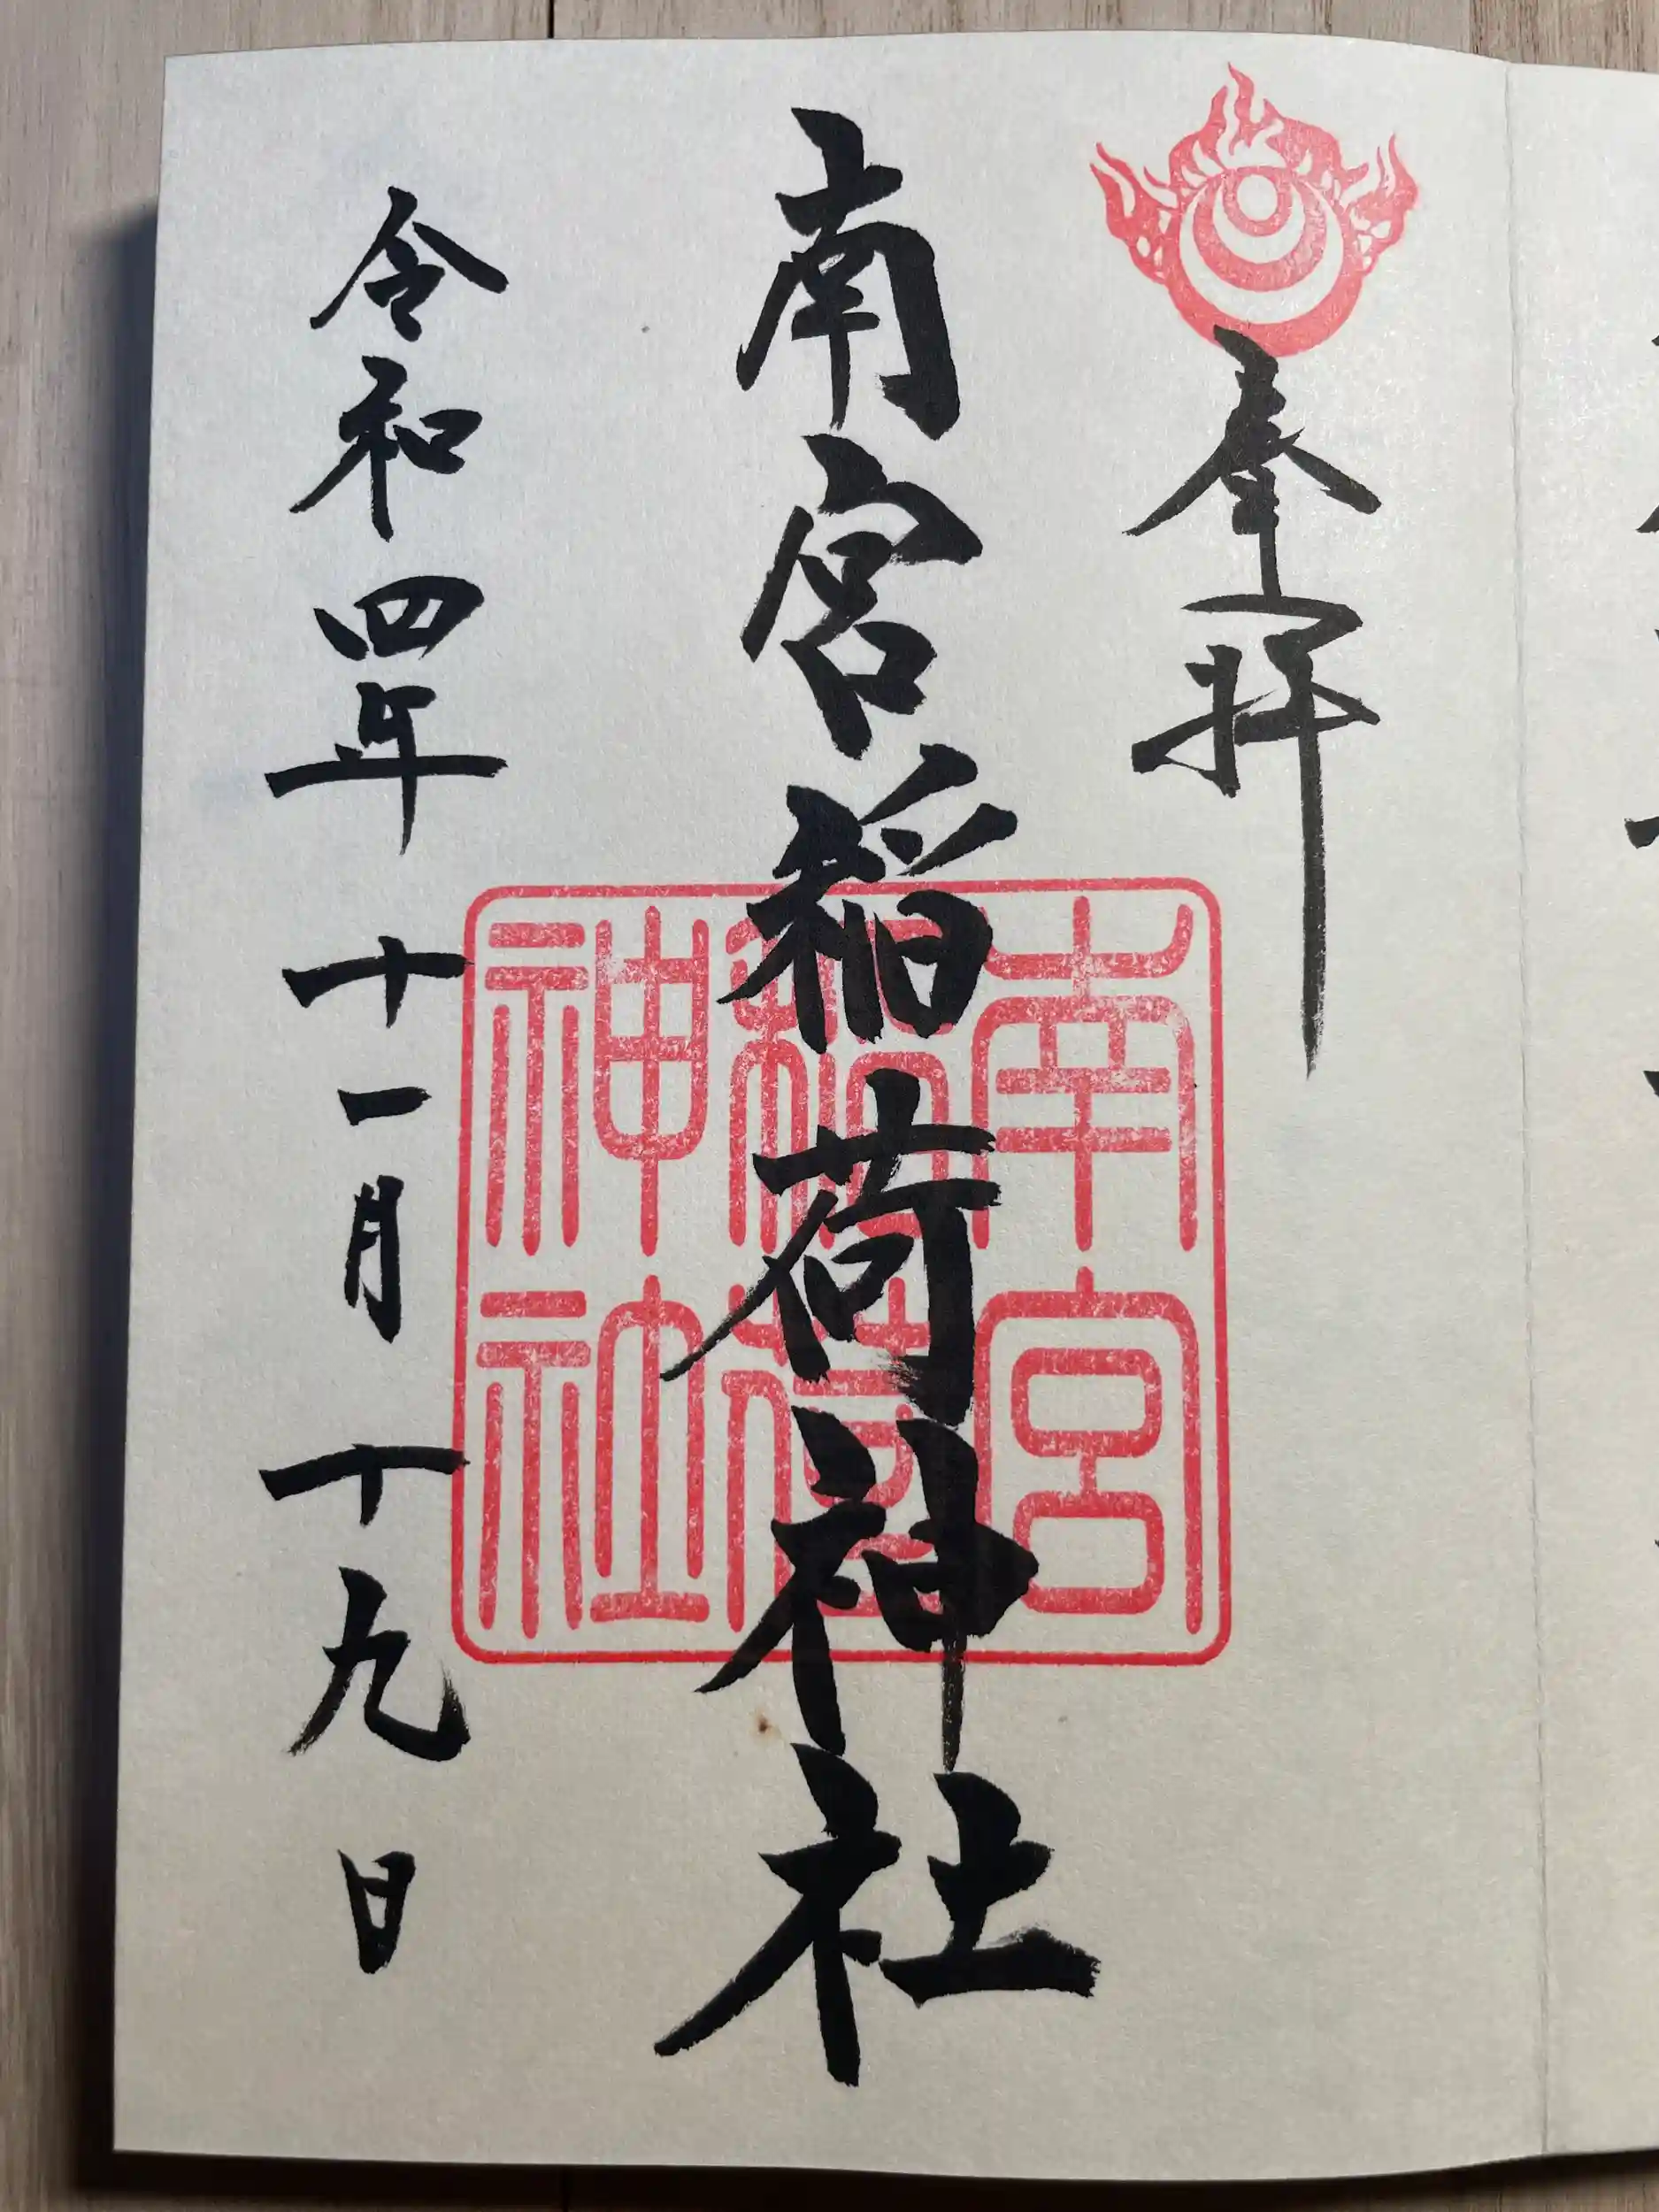 奉拝
南宮稲荷神社
南宮
稲荷
神社
令和四年十一月十九日